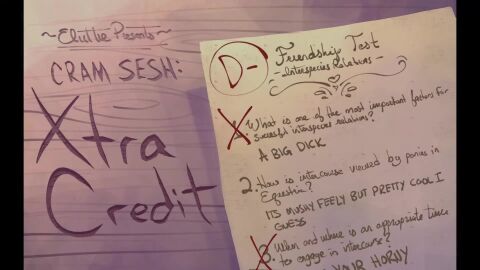 ~ Elutke Presents ~
CRAM SESH:
Xtra
Credit
D-
Friendship Test
-Interspecies Relations-
1. What is one of the most important factors for
sucessful interspecies relations?
A BIG DICK
2. How is intercourse viewed by ponies in
Equestria?
ITS MUSHY FEELY BUT PRETTY COOL I
GUESS
3. When and where is an appropriate time
to engage in intercourse?
YOUR HORNY